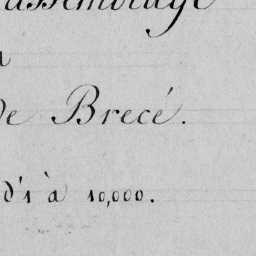 assemblage
de Brecé.
d'1 à 10,000.